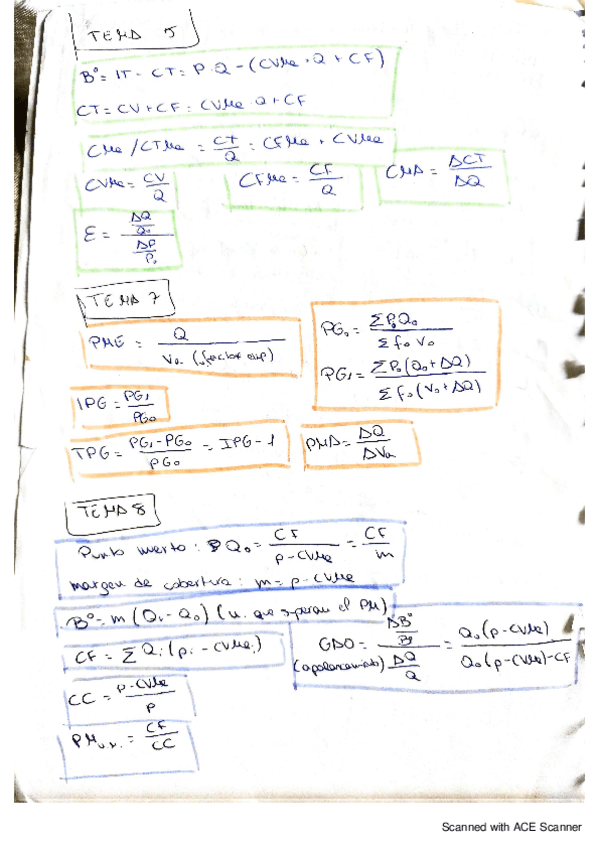 TEMA 5
Bº = IT - CT = P·Q - (CVMe · Q + CF)
CT = CV + CF = CVMe · Q + CF
CMe / CTMe = CT/Q = CFMe + CVMe
CVMe = CV/Q
CFMe = CF/Q
CMA = ΔCT/ΔQ
E = (ΔQ/Q₀)/(ΔP/P₀)
TEMA 7
PME = Q/Va (factor exp)
PG₀ = ΣP₀Q₀/Σf₀V₀
PG₁ = ΣP₀(Q₀+ΔQ)/Σf₀(V₀+ΔV)
IPG = PG₁/PG₀
TPG = (PG₁-PG₀)/PG₀ = IPG - 1
PMA = ΔQ/ΔVa
TEMA 8
Punto muerto: Q₀ = CF/(p-CVMe) = CF/m
margen de cobertura: m = p - CVMe
Bº = m (Q₁ - Q₀) (u. que superan el PM)
CF = ΣQᵢ(pᵢ - CVMeᵢ)
GAO = (ΔBº/Bº)/(ΔQ/Q) = Q₀(p-CVMe)/(Q₀(p-CVMe)-CF)
(apalancamiento)
CC = (p-CVMe)/p
PM u.m. = CF/CC
Scanned with ACE Scanner